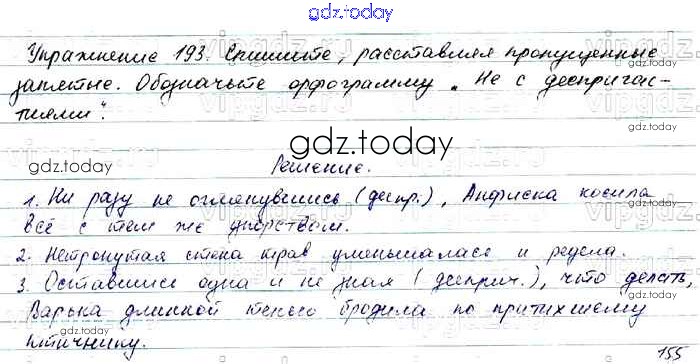 gdz.today
Упражнение 193. Спишите, расставляя пропущенные
запятые. Обозначьте орфограмму „Не с деепричас-
тиями".
gdz.today
gdz.today
Решение.
1. Ни разу не оглянувшись (деепр.), Анфиска косила
всё с тем же упорством.
gdz.today
2. Нетронутая стена трав уменьшалась и редела.
3. Оставшись одна и не зная (дееприч.), что делать,
Варька длинной тенью бродила по притихшему
gdz.today
птичнику.
155